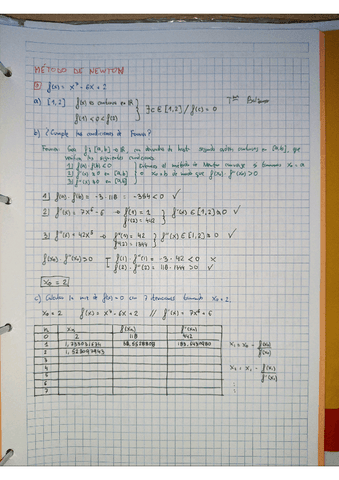 MÉTODO DE NEWTON
f(x) = x⁷ - 6x + 2
a) [1,2] f(x) es continua en ℝ } ∃ c ∈ [1,2] / f(c) = 0 Tᵐᵃ Bolzano
f(1) < 0 < f(2)
b) ¿Cumple las condiciones de Fourier?
Fourier: Sea f: [a,b] → ℝ, con derivadas de hasta segundo orden continuas en [a,b], que
verifica las siguientes condiciones
1) f(a)·f(b) < 0
2) f'(x) ≠ 0 en [a,b]
3) f''(x) ≠ 0 en [a,b]
Entonces el método de Newton converge si tomamos x₀ = a
o x₀ = b de modo que f(x₀)·f''(x₀) > 0
1) f(a)·f(b) = -3·118 = -354 < 0 ✓
2) f'(x) = 7x⁶ - 6 → f'(1) = 1 } f'(x) ∈ [1,2] ≠ 0 ✓
f'(2) = 442
3) f''(x) = 42x⁵ → f''(1) = 42 } f''(x) ∈ [1,2] ≠ 0 ✓
f''(2) = 1344
f(x₀)·f''(x₀) > 0 f(1)·f''(1) = -3·42 < 0 ×
f(2)·f''(2) = 118·1344 > 0 ✓
x₀ = 2
c) Calcular la raíz de f(x) = 0 con 7 iteraciones tomando x₀ = 2
x₀ = 2 f(x) = x⁷ - 6x + 2 // f'(x) = 7x⁶ - 6
n xₙ f(xₙ) f'(xₙ)
0 2 118 442
1 1,733031674
2 1,523097943
3
4
5
6
7
x₁ = x₀ - f(x₀)/f'(x₀)
x₂ = x₁ - f(x₁)/f'(x₁)